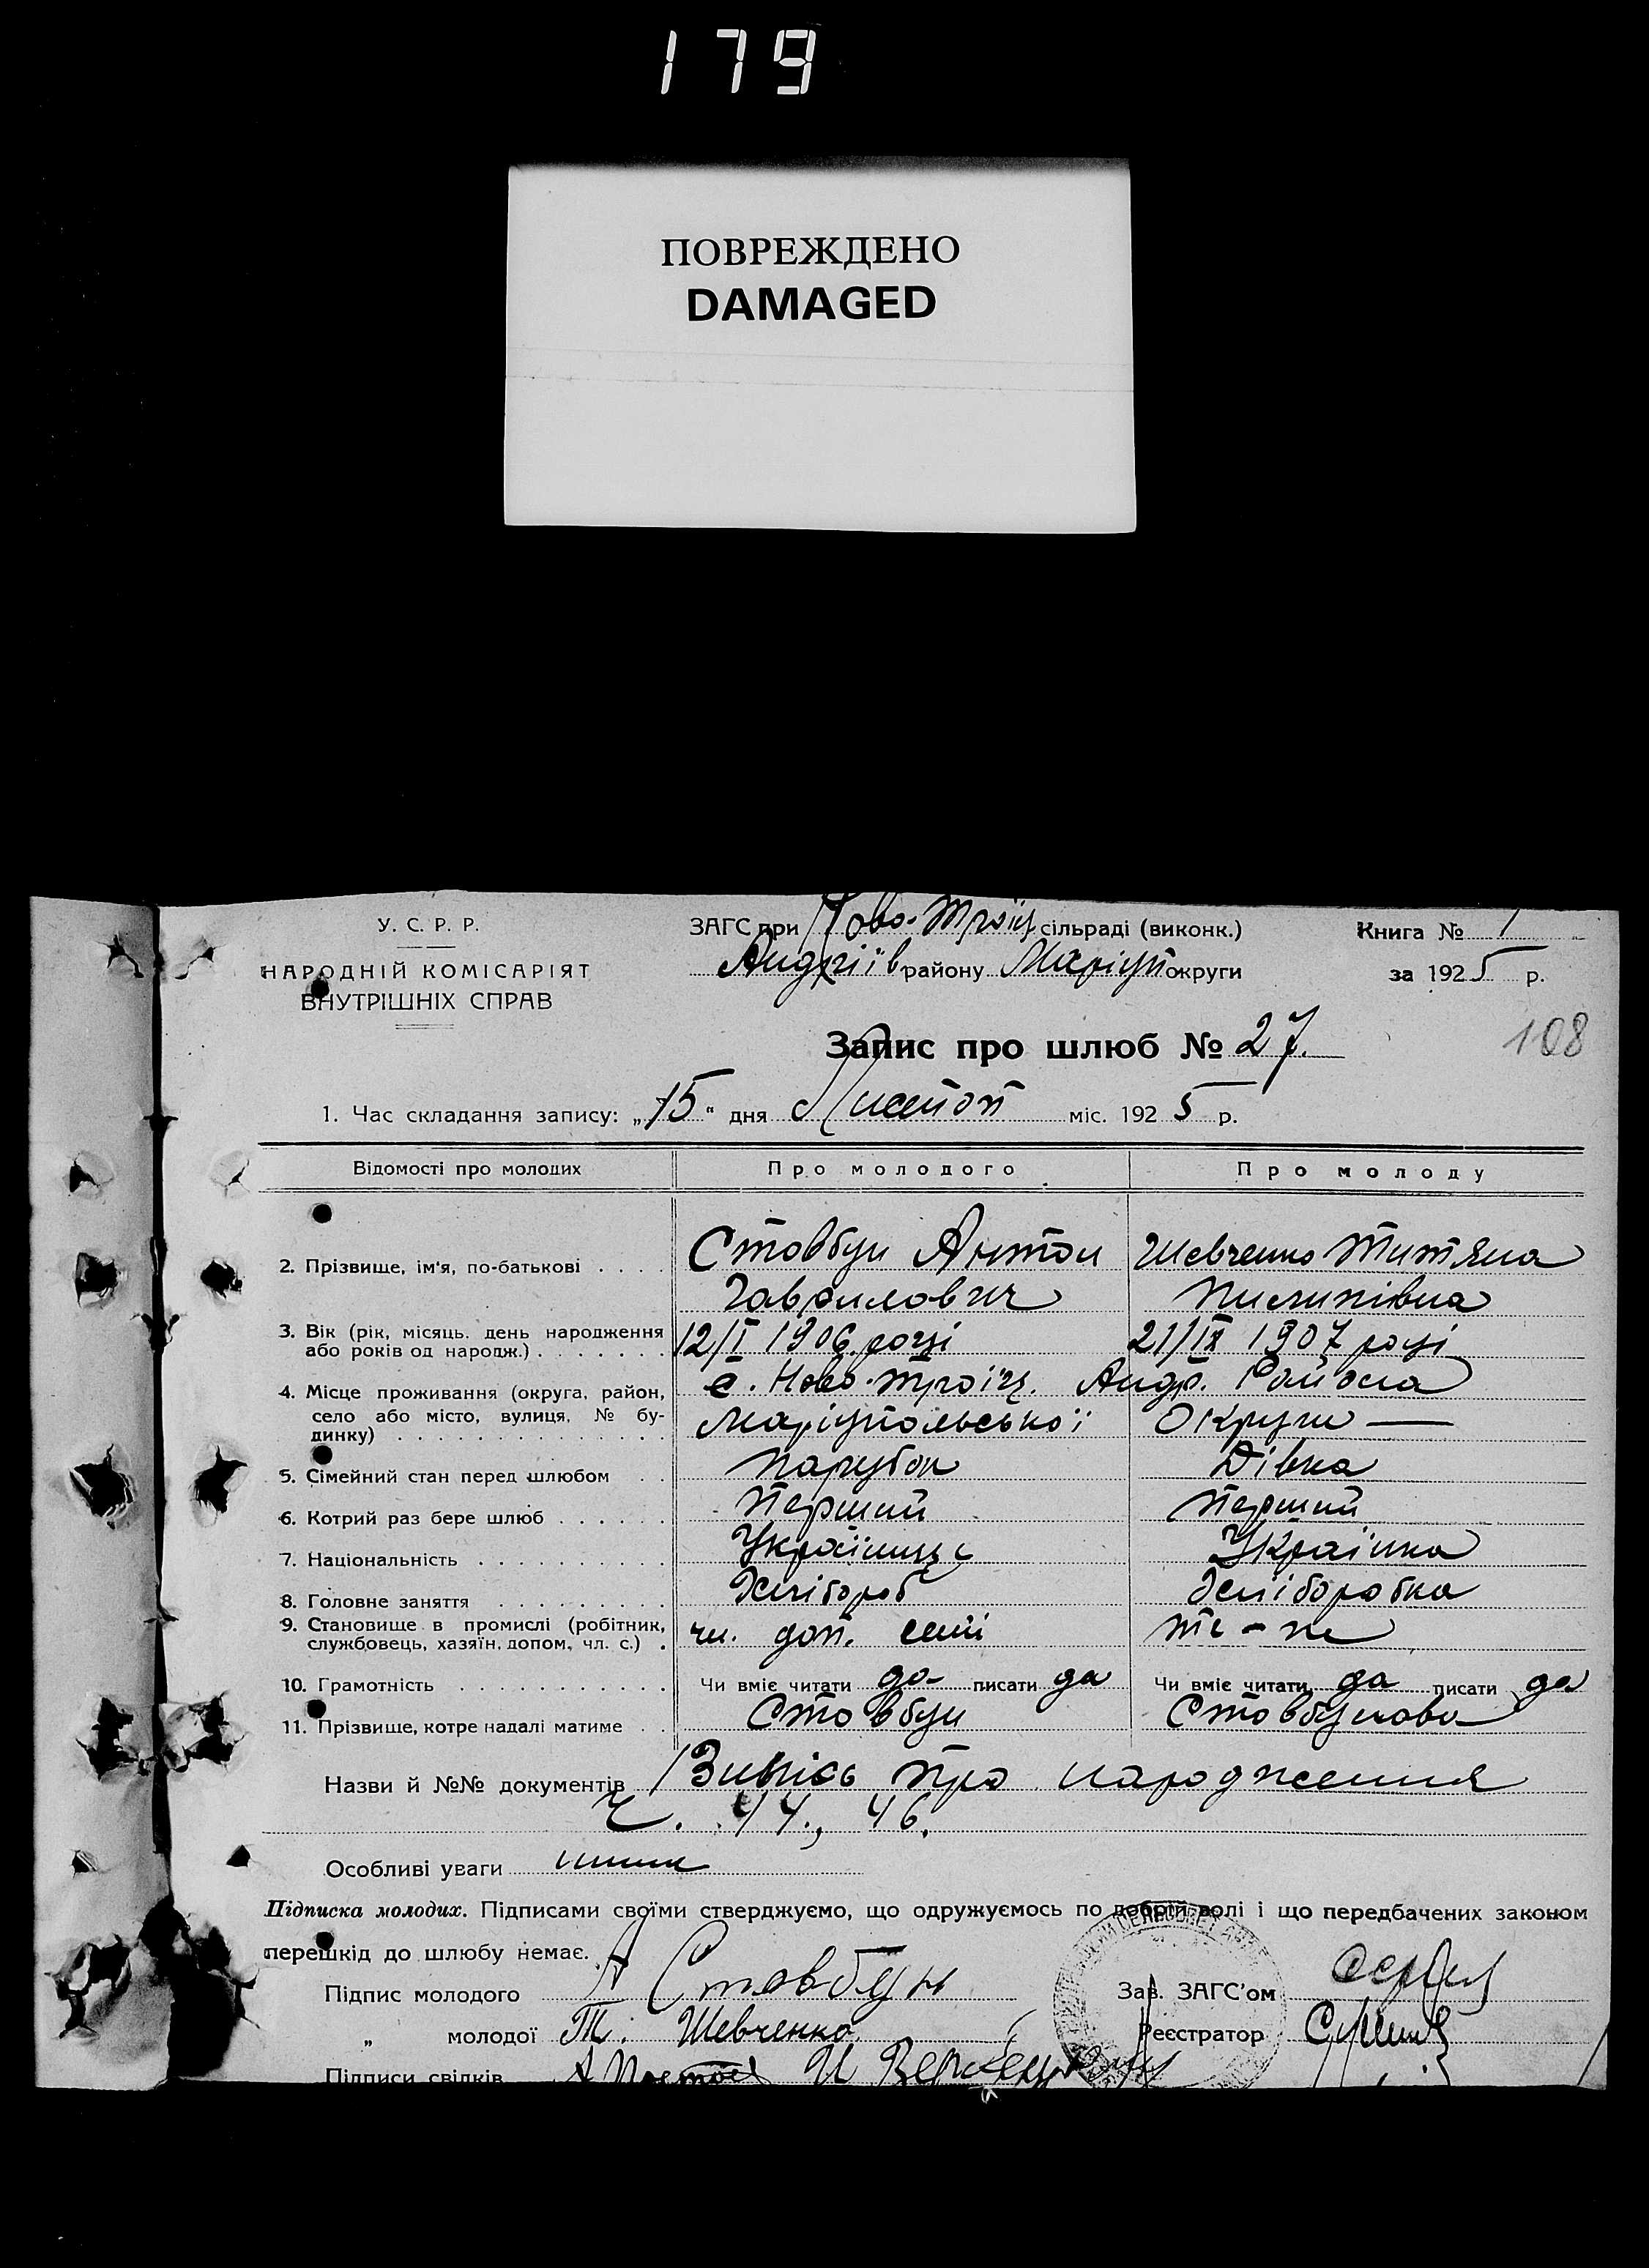 179
ПОВРЕЖДЕНО
DAMAGED
У. С. Р. Р.
НАРОДНІЙ КОМІСАРІЯТ
ВНУТРІШНІХ СПРАВ
ЗАГС при Ново-Троїц сільраді (виконк.)
Андріїв району Маріуп округи
Книга № 1
за 1925 р.
Запис про шлюб № 27.
108
1. Час складання запису: „15“ дня Листоп міс. 1925 р.
Відомості про молодих Про молодого Про молоду
2. Прізвище, ім'я, по-батькові . . . . Стовбун Антон Шевченко Титяна
Гаврилович Пилипівна
3. Вік (рік, місяць, день народження 12/I 1906 році 21/IX 1907 році
або років од народж.) . . . . . . .
4. Місце проживання (округа, район, с. Ново-Троїц. Андр. Района
село або місто, вулиця, № бу- Маріупольської Округи —
динку) . . . . . . . . . . . . . .
5. Сімейний стан перед шлюбом . . Парубок Дівка
6. Котрий раз бере шлюб . . . . . . Перший Перший
7. Національність . . . . . . . . . . Українець Українка
8. Головне заняття . . . . . . . . . Хлібороб Хліборобка
9. Становище в промислі (робітник, чл. доп. семї те-же
службовець, хазяїн, допом., чл. с.) .
10. Грамотність . . . . . . . . . . . Чи вміє читати да писати да Чи вміє читати да писати да
11. Прізвище, котре надалі матиме . . Стовбун Стовбунова
Назви й №№ документів про народження
Ч. 14., 46.
Особливі уваги
Підписка молодих. Підписами своїми стверджуємо, що одружуємось по добрій волі і що передбачених законом
перешкід до шлюбу немає.
Підпис молодого А Стовбун Зав. ЗАГС'ом
„ молодої Т. Шевченко Реєстратор
Підписи свідків